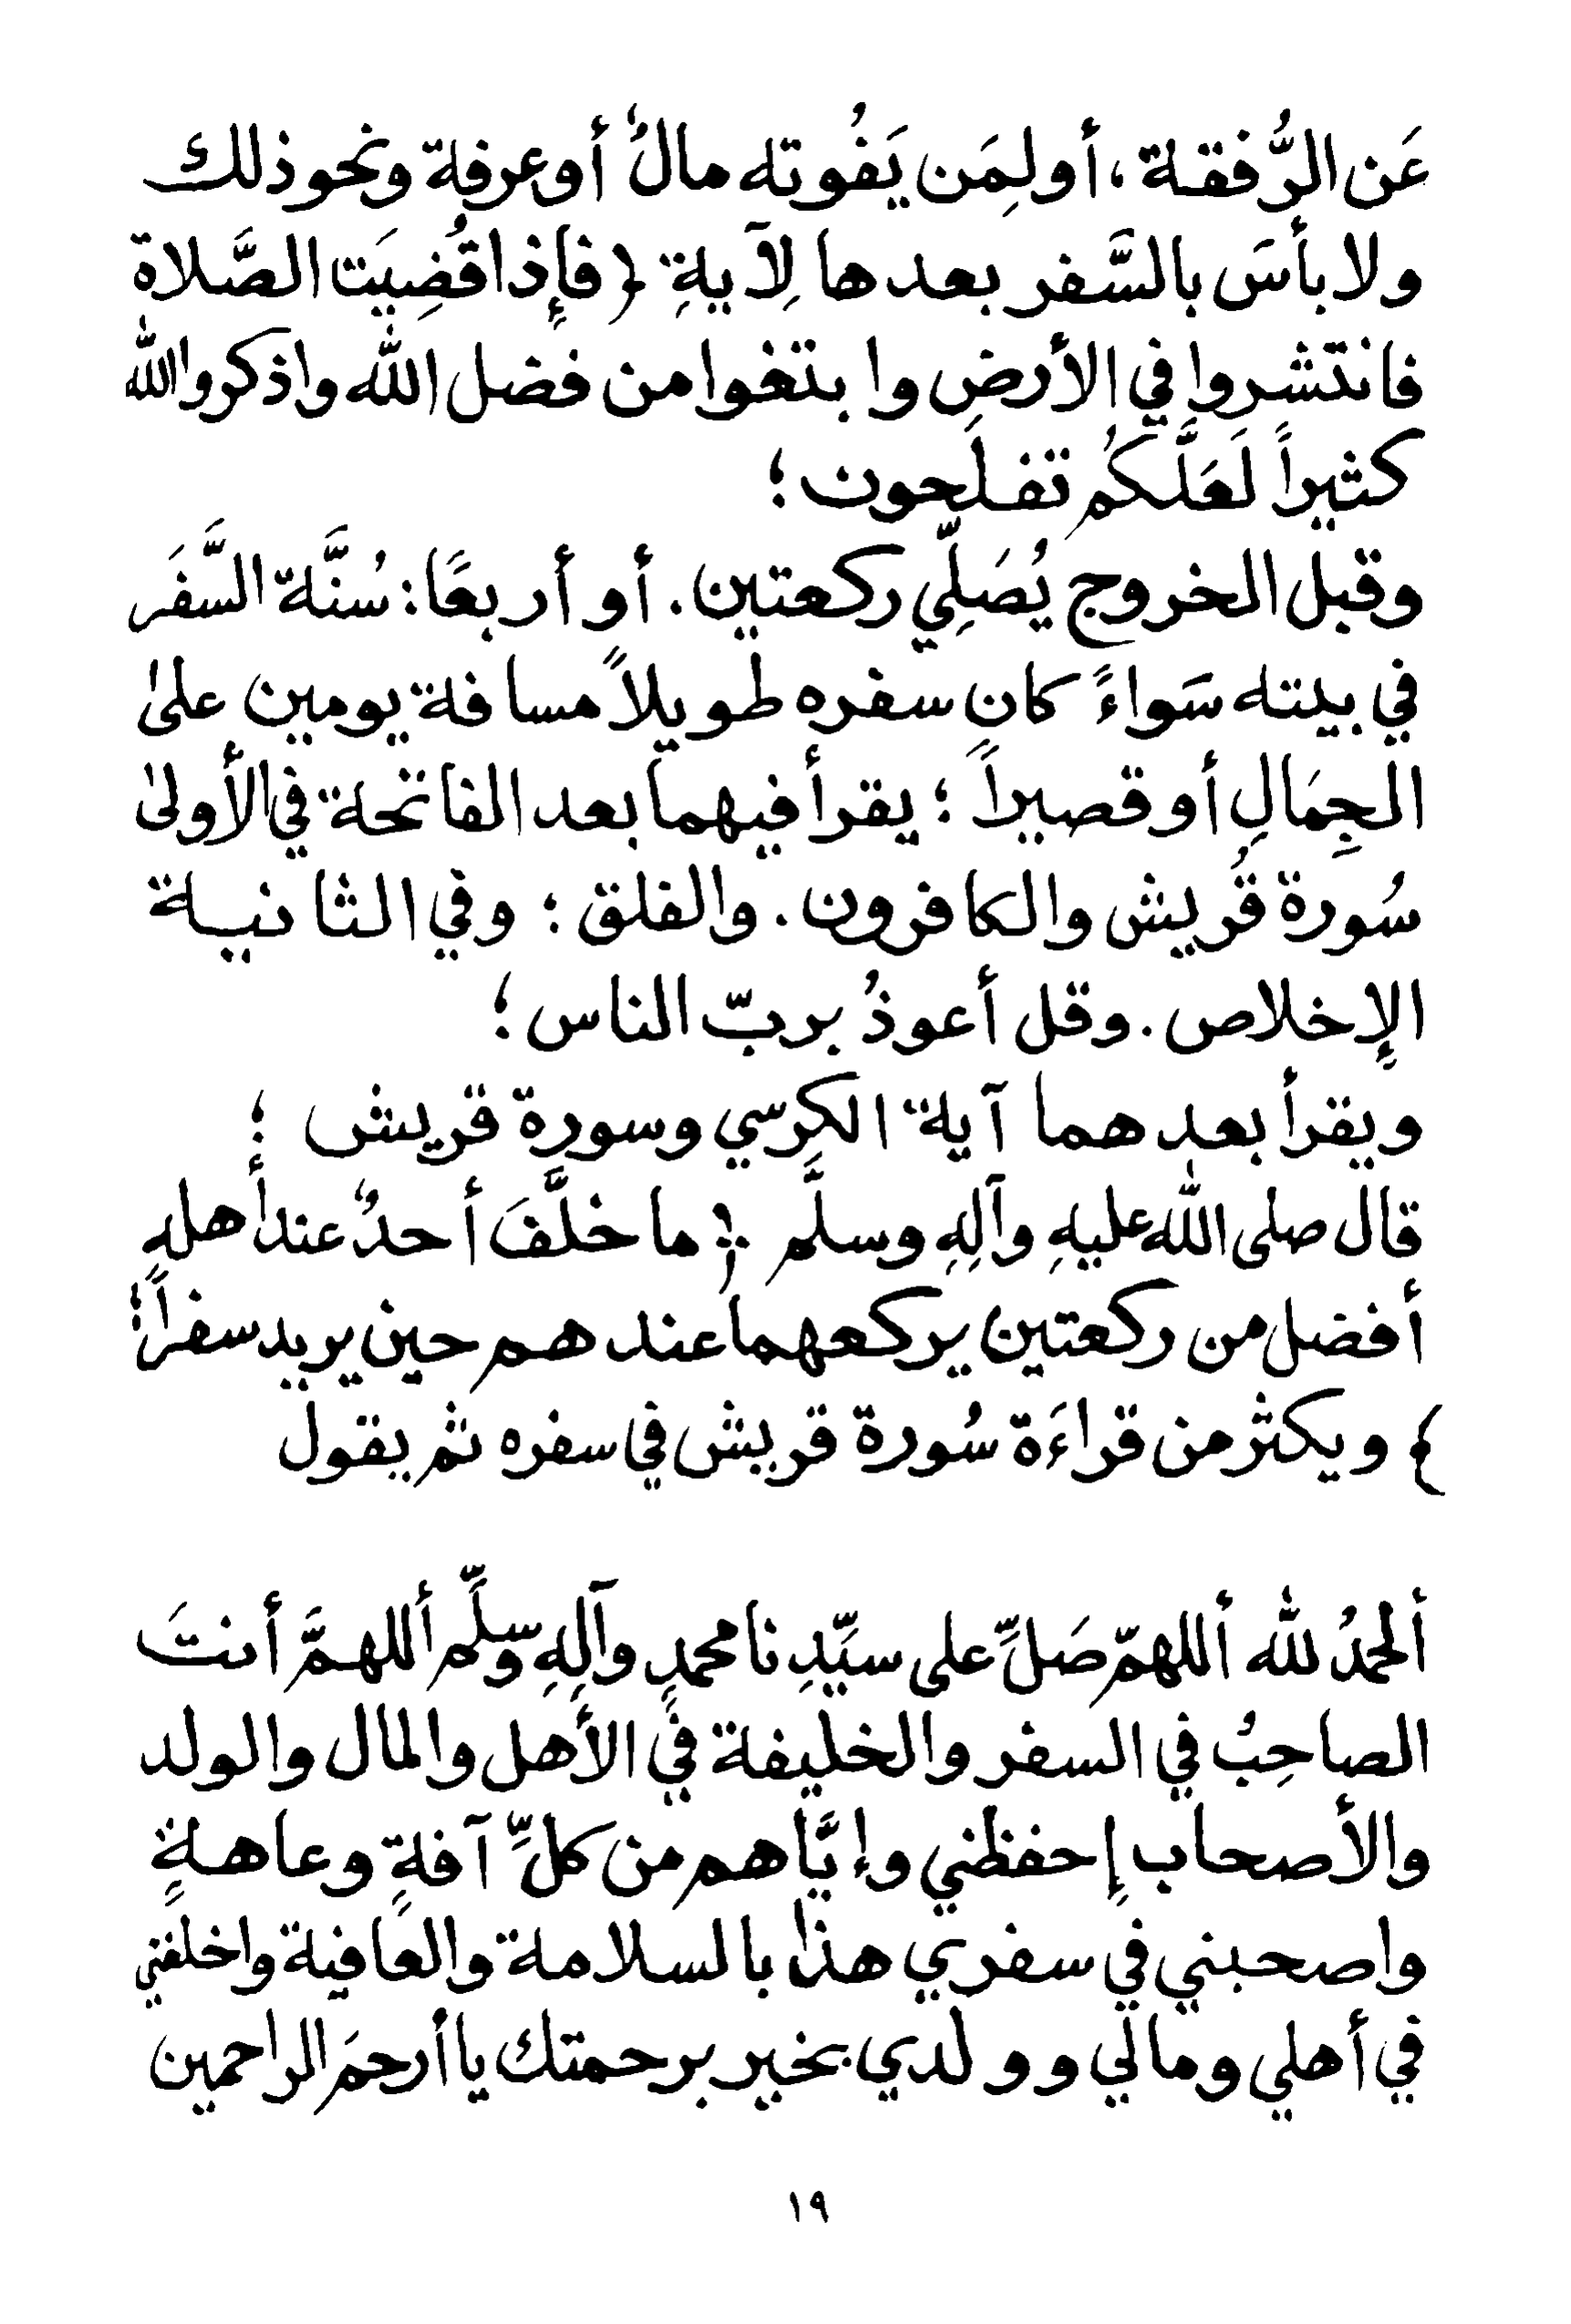 عَن الرُّفقة، أو لِمَن يَفُوته مالٌ أو عرفة ونحو ذلك
ولا بأسَ بالسَّفر بعدها لِآيةِ ﴿ فإِذا قُضِيَت الصَّلاة
فانتشروا في الأرضِ وابتغوا من فضل الله واذكروا الله
كثيراً لَعَلَّكُم تفلحون ؛
وقبل الخروج يُصَلِّي ركعتين. أو أربعًا: سُنَّة السَّفَر
في بيته سَواءً كان سفره طويلاً مسافة يومين على
الجِمَالِ أو قصيراً ؛ يقرأ فيهما بعد الفاتحة في الأولى
سُورة قُريش والكافرون. والفلق ؛ وفي الثانية
الإخلاص. وقل أعوذُ بربّ الناس ؛
ويقرأ بعدهما آية الكرسي وسورة قريش ؛
قال صلى الله عليهِ وآلِهِ وسلَّم ﴿ ما خلَّفَ أحدٌ عند أهلهِ
أفضل من ركعتين يركعهما عندهم حين يريد سفراً ؛
﴾ ويكثر من قراءَة سُورة قريش في سفره ثم يقول
ألحمدُ لله أللهمّ صَلِّ على سيِّدِنا محمدٍ وآلِهِ وسلِّم أللهمَّ أنتَ
الصاحِبُ في السفر والخليفة في الأهل والمال والولد
والأصحاب إحفظني وإيَّاهم من كلِّ آفةٍ وعاهةٍ
واصحبني في سفري هذا بالسلامة والعافية واخلفني
في أهلي ومالي وولدي بخير برحمتك يا أرحمَ الراحمين
١٩